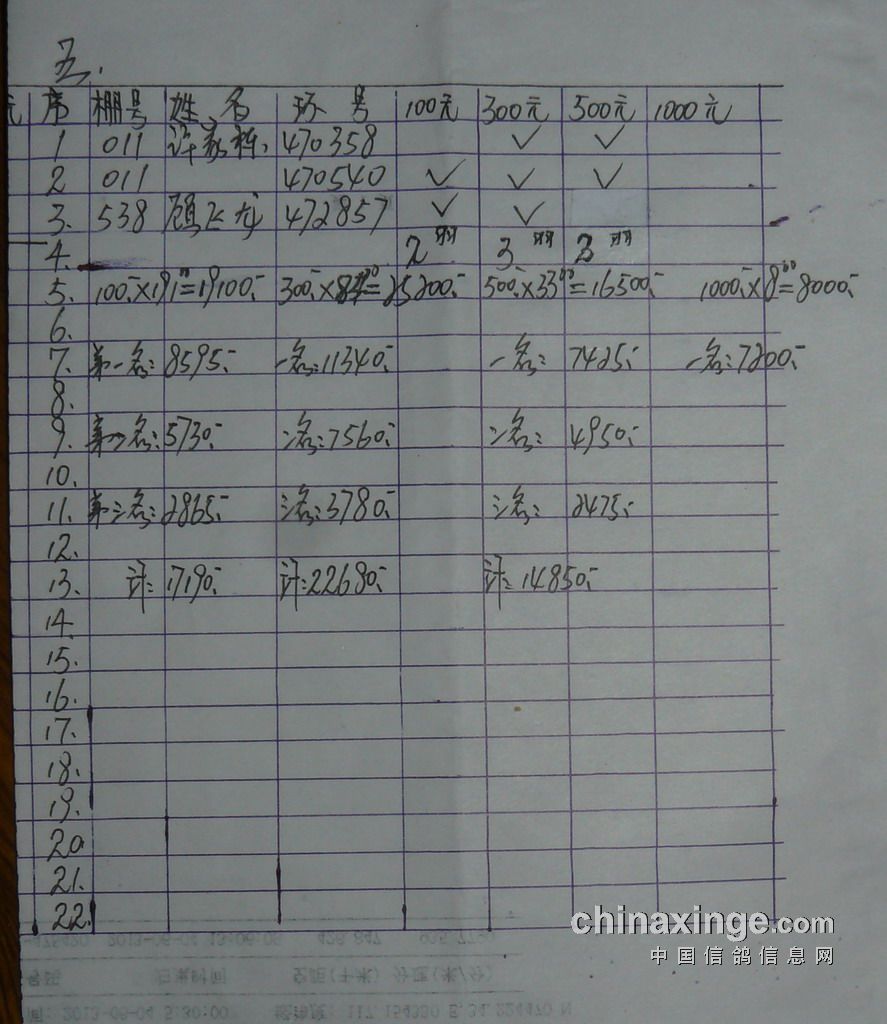 五.
元 序 棚号 姓、名 环号 100元 300元 500元 1000元
1 011 许 470358 ✓ ✓
2 011 470540 ✓ ✓ ✓
3. 538 顾飞龙 472857 ✓ ✓
4. 2羽 3羽 3羽
5. 100.-×191=19100.- 300.-×84=25200.- 500.-×33=16500.- 1000.-×8=8000.-
6.
7. 第一名:8595.- 一名:11340.- 一名: 7425.- 一名:7200.-
8.
9. 第二名:5730.- 二名:7560.- 二名: 4950.-
10.
11. 第三名:2865.- 三名:3780.- 三名: 2475.-
12.
13. 计: 17190.- 计:22680.- 计:14850.-
14.
15.
16.
17.
18.
19.
20.
21.
22.
chinaxinge.com
中国信鸽信息网